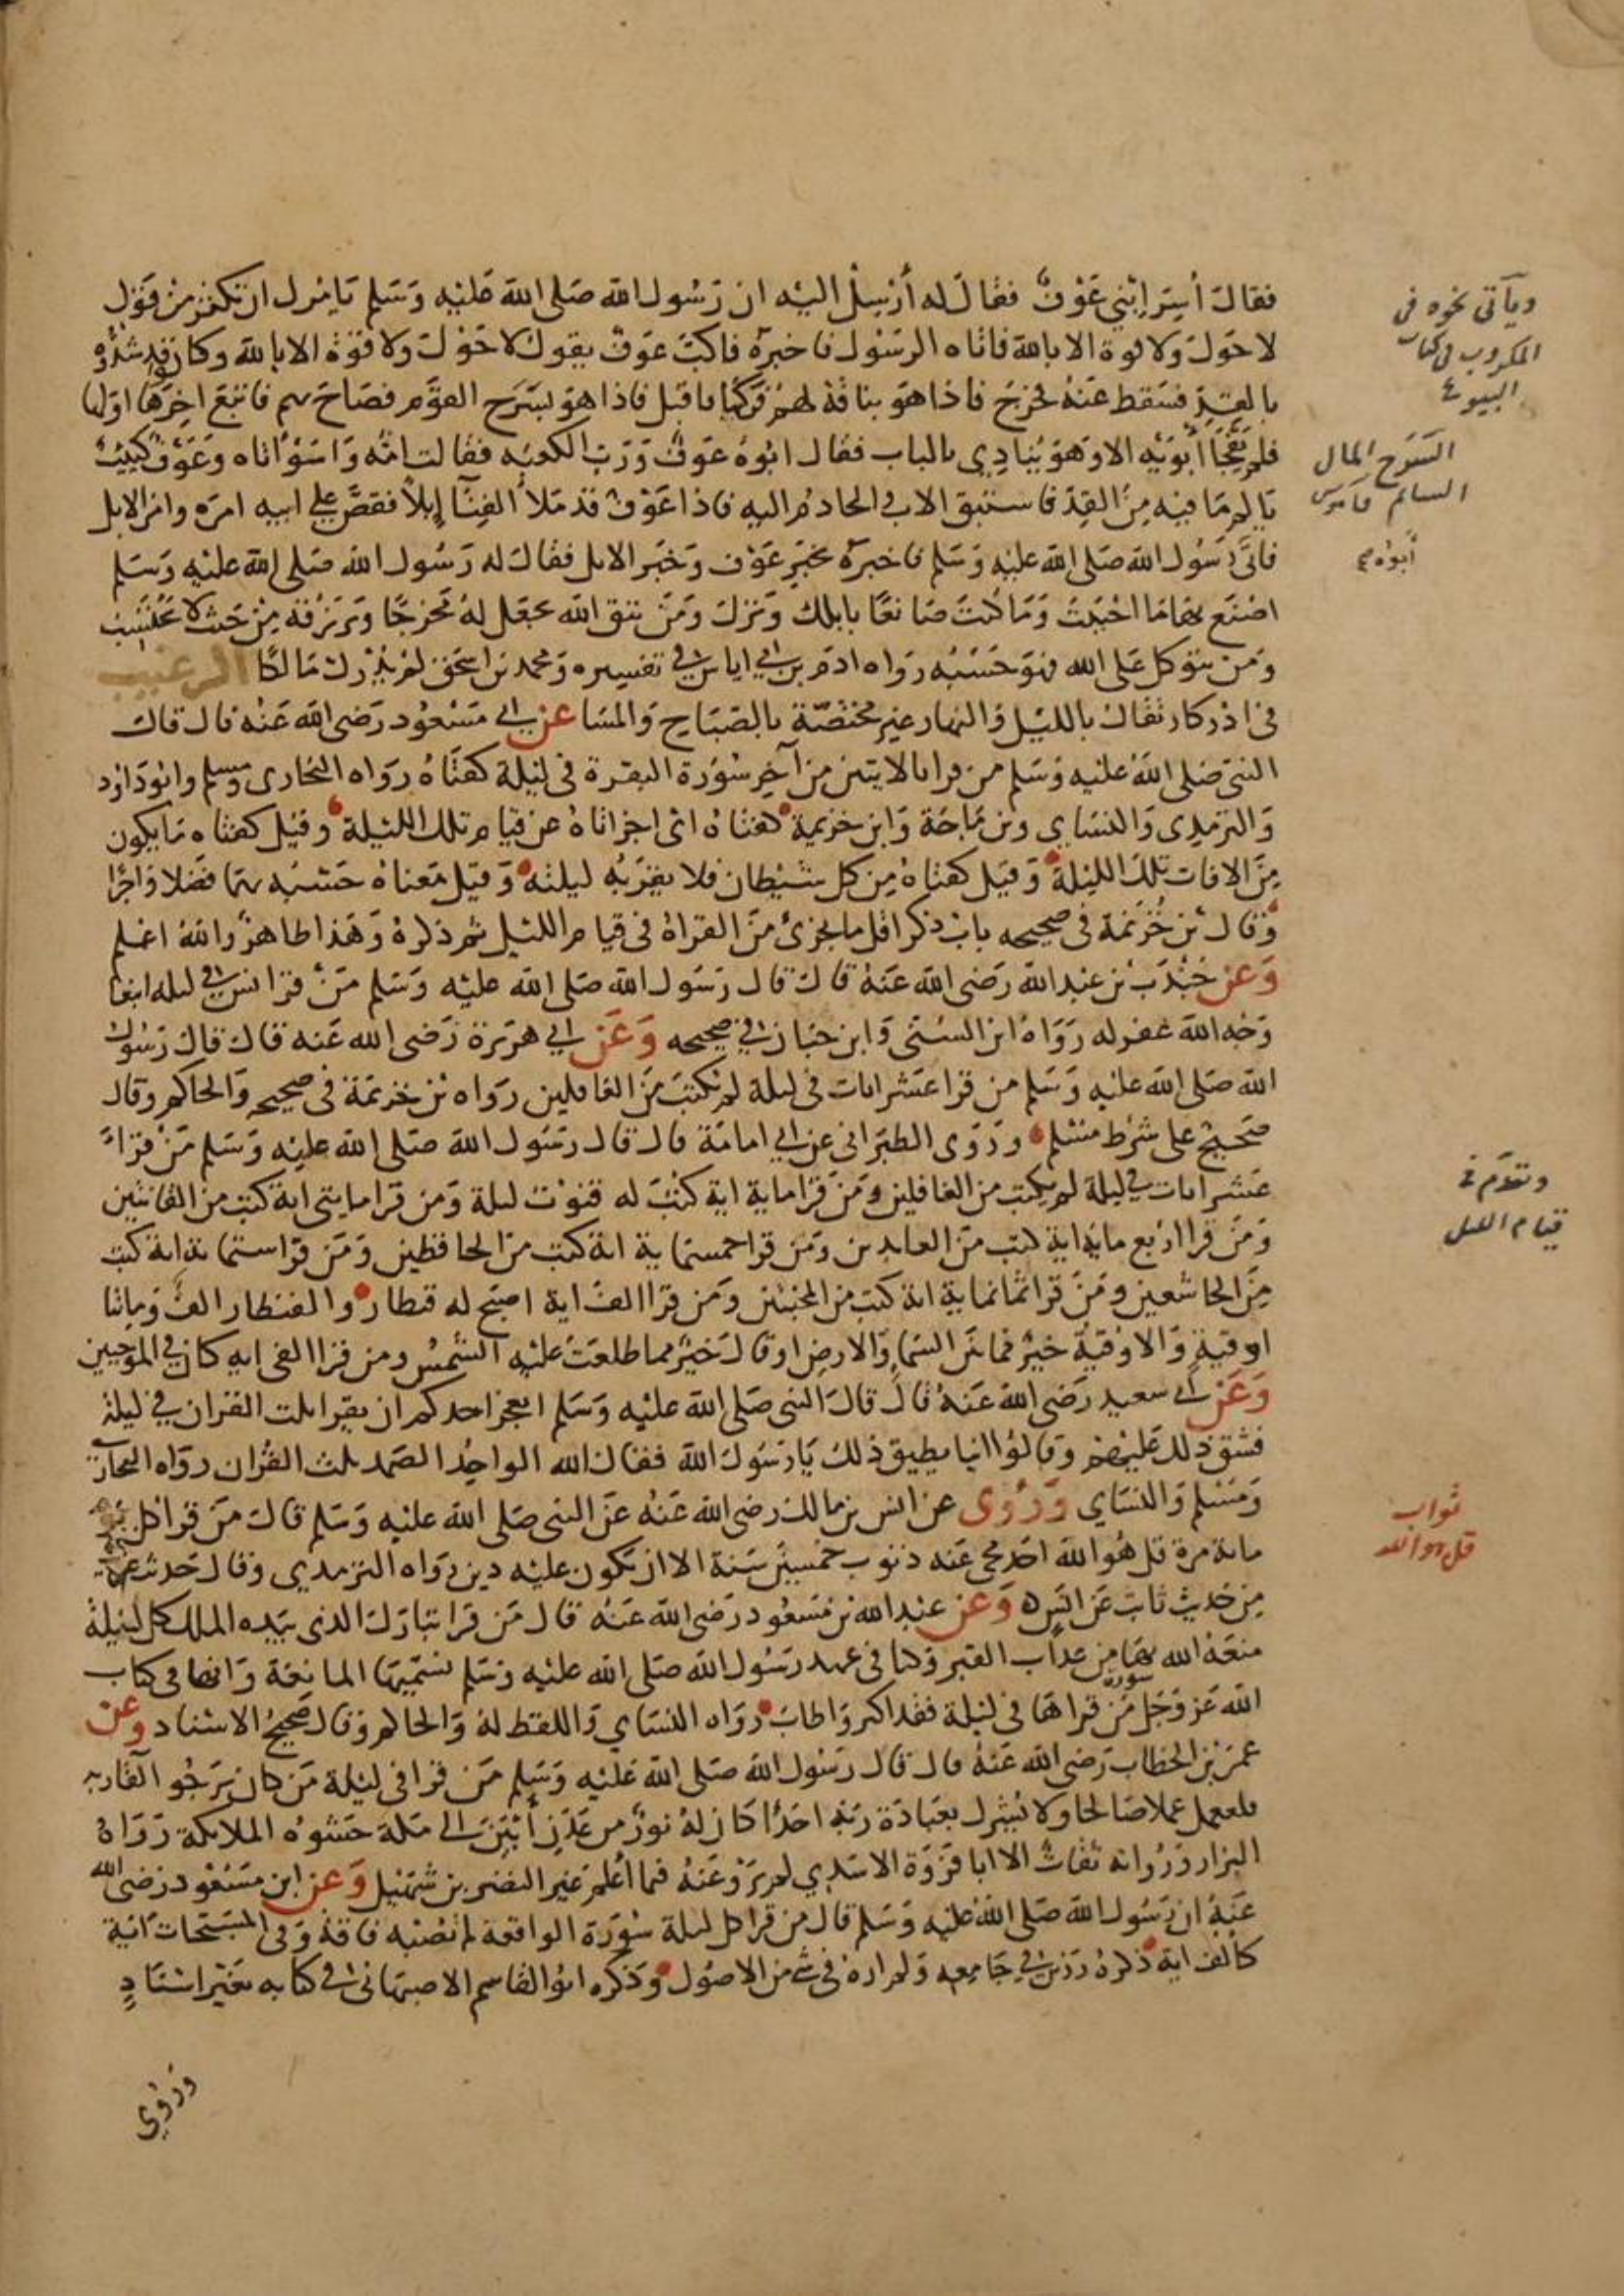 فقال أُسِرَ ابْني عَوْفٌ فقال له أَرْسِلْ اليْه ان رَسُول الله صَلى الله عَليْه وَسَلم يَامُرك ان تكثِرَ من قَوْل
لا حَول ولا قوة الا بالله فاتاه الرسْول فاخبرَه فاكبَّ عَوفٌ يقول لا حَوْلَ ولا قوَّة الا بالله وكانوا قد شدُّوه
بالقِدِّ فسَقط عَنهُ فخرَجَ فاذا هوَ بناقة لهُم فركبَها فاقبل فاذا هوَ بسَرح القوَّم فصَاحَ بهم فاتبَعَ اخِرَهَا اوّلها
فلم يَفْجَا أبَوَيْه الا وَهوَ يُنادِي بالباب فقال ابُوهُ عَوفٌ وَرَبّ الكعبَه فقالت امُّه وَاسَوْأتاه وعَوْف كئيبٌ
يالم مَا فيْه مِنَ القِدّ فاستَبق الاب والخادمُ اليه فاذا عَوْف قد مَلأ الفِنآ إبلاً فقصَّ على ابيه امرَه وامرَ الابل
فاتى رَسُول الله صَلى الله عليْه وَسَلم فاخبرَه بخبَرِ عَوْف وَخبَر الابل فقال له رَسُول الله صَلى الله عليْه وَسَلم
اصْنَع بهَا مَا احْبَبتَ وَمَا كُنتَ صَانعًا بابلك وَنزلَ وَمَن يتق الله يجعَل لهُ مخرجًا وَيَرْزُقه مِنْ حَيث لا يحْتَسِب
وَمن يتوكل عَلى الله فهوَ حَسْبُه رَواه ادَم بن ابي اياس في تفسيره وَمحمد بن اسحَق لم يُدْرك مَالكا الترغيب
في اذكار تقال بالليْل وَالنهار غير مختصَّة بالصَبَاح وَالمسَا عَن ابي مَسْعُود رَضى الله عَنْه قال قال
النبى صَلى الله عليه وَسَلم من قرا بالايتين من آخِر سُورَة البقرة في ليْلة كفتَاهُ رَواه البخارى ومسلم وابُو دَاوُد
وَالترمذِى وَالنسَاي وبن مَاجَة وَابن خزيمة كفتاهُ اى اجزاتاهُ عن قيام تلك الليْلة وقيل كفتاه مَا يكون
مِنَ الافات تلك الليْلة وَقيل كفتاهُ مِن كل شيْطان فلا يقرَبُه ليلته وَقيل مَعناهُ حَسْبُه بهمَا فضْلا وَاجْرًا
وَقال بن خُزيمَة في صحيحه باب ذكر اقل ما يجزئ مِنَ القراة في قيام الليْل ثم ذكرهُ وَهَذا ظاهِر والله اعْلم
وَعَن جُنْدَب بن عبد الله رَضى الله عَنهُ قال قال رَسُول الله صَلى الله عليْه وَسَلم مَنْ قرا يس في ليله ابتغا
وَجْه الله غفر له رَوَاهُ ابن السُنّى وَابن حبَان في صحيحه وَعَن ابي هرَيرَة رَضى الله عَنه قال قال رَسُول
الله صَلى الله عليْه وَسَلم من قرا عَشر ايات في ليلة لم يُكتبَ مِنَ الغافلين رَواه بن خزيمَة في صحيحه وَالحاكم وقال
صحيح على شرْط مسْلم وَرَوَى الطبَرانى عن ابي امامَة قال قال رَسُول الله صَلى الله عليْه وَسَلم مَنْ قرَاَ
عَشر ايات في ليلة لم يكتب من الغافلين وَمَنْ قرَا ماية اية كتبَ له قنوْت ليلة وَمن قرَا مايتى اية كتب من القانتين
وَمَنْ قرا ارْبع ماية اية كتب منَ العابدين وَمَن قرا خمسماية اية كتب منَ الحافظين وَمَن قرا ستماية اية كتب
مِنَ الخاشعين وَمَنْ قرا ثمانماية اية كتب من المخبتين وَمَن قرا الف اية اصبَح له قنطار والقنطار الف وَمائتا
اوقية وَالاوقيَّة خيْرٌ مما بَيْن السمَا والارض او قال خَيْرٌ مما طلعَت عَليْه الشمْسُ وَمن قرا الفى اية كان في الموجبين
وَعَن ابي سعيد رَضى الله عَنهُ قال قال النبى صَلى الله عليْه وَسَلم ايعجز احدكم ان يقرا ثلث القران في ليلة
فشق ذلك عَليْهِم وَقالوُا اينا يطيق ذلك يَا رَسُول الله فقال الله الواحِدُ الصَمد ثلث القُران رَوَاه البخارى
وَمسْلم وَالنسَاي وَرُوى عن انس بن مالك رضى الله عَنْه عَن النبى صَلى الله عليْه وَسَلم قالَ مَنْ قرا كل يوم
مائة مرة قل هُوَ الله احَد مُحى عَنه ذنوب خمسين سَنة الا ان يكون عليْه دين رَوَاه الترمذي وقال حَديث غريب
مِن حَديث ثابت عَن انَس وَعَن عبد الله بن مَسْعود رَضى الله عَنْه قال مَن قرَا تبارَك الذى بيَده الملك كل ليْلة
منعَهُ الله بهَا مِن عذاب القبر وَكنا في عهد رَسُول الله صَلى الله عليه وَسَلم نسَمّيهَا المانعَة وَانها في كتاب
الله عَز وَجَل سورة مَن قراهَا في ليْلة فقد اكثر وَاطابَ رَوَاه النسَاي وَاللفظ لهُ وَالحاكم وَقال صَحيحُ الاسْناد وعن
عمَر بن الخطاب رَضى الله عَنهُ قال قال رَسُول الله صَلى الله عَليْه وَسَلم مَن قرا في ليْلة مَن كان يَرْجُو لقاربه
فليعمل عملا صَالحا ولا يُشرك بعبَادَة رَبّه احَدًا كان لهُ نورٌ من عَدَن أبْيَنَ الى مَكة حَشوُه الملايكة رَوَاهُ
البزار وَرُواته ثقاتٌ الا ابا قرَّة الاسَدِي لم يَرْو عَنهُ فيما أعْلم غيْر النضر بن شُمَيْل وَعن ابن مَسْعُود رَضى الله
عَنهُ ان رَسُول الله صَلى الله عليْه وَسَلم قال من قرا كل ليلة سُورَة الواقعة لم تصْبه فاقة وَفى المسَبّحات آيَة
كالف اية ذكرهُ رَزين في جَامِعِه وَلم ارَهُ في شي من الاصُول وَذكره ابوُ القاسم الاصبَهانى في كتابه بغيْر اسْنَادٍ
وَرُوِي
ويأتى نحوه فى
المكروب فى كتاب
البيوع
السَرح المال
السائم قاموس
أبوه
وتقدم فى
قيام الليل
ثواب
قل هو الله